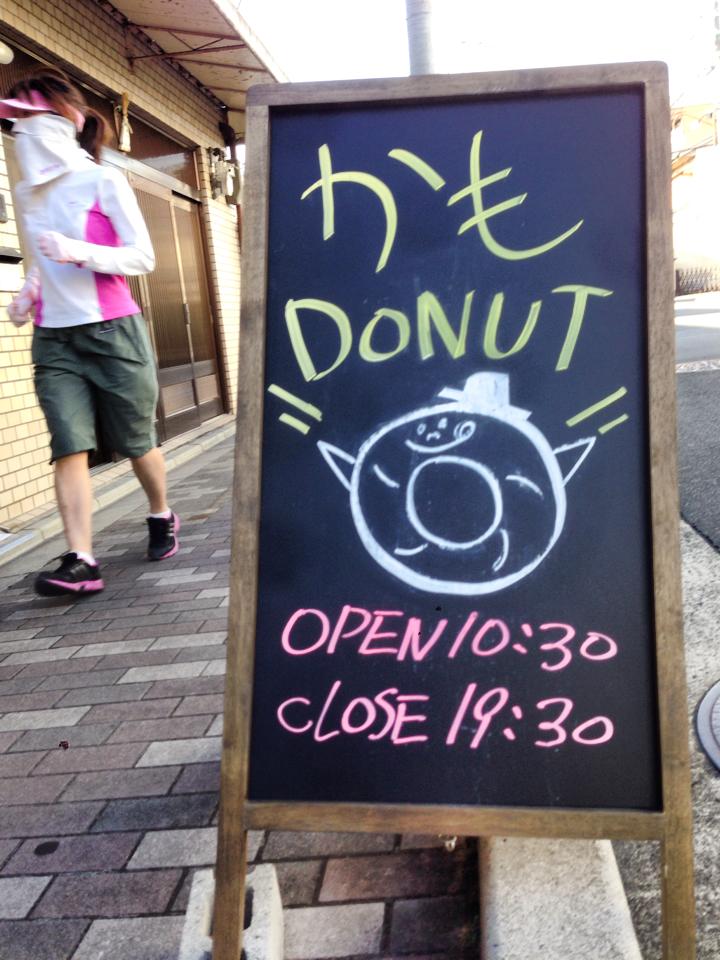 かも
DONUT
OPEN 10:30
CLOSE 19:30